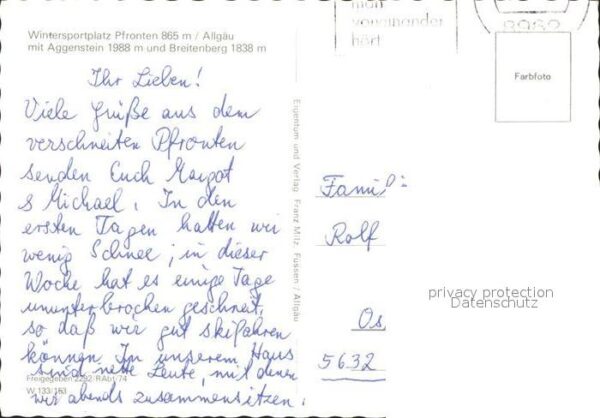 Wintersportplatz Pfronten 865 m / Allgäu
mit Aggenstein 1988 m und Breitenberg 1838 m
Ihr Lieben!
Viele Grüße aus dem
verschneiten Pfronten
senden Euch Margot
& Michael. In den
ersten Tagen hatten wir
wenig Schnee, in dieser
Woche hat es einige Tage
ununterbrochen geschneit,
so daß wir gut skifahren
können. In unserem Haus
sind nette Leute, mit denen
wir abends zusammensitzen.
Freigegeben 2292/RAbt 74
W 133/153
Eigentum und Verlag Franz Milz, Füssen / Allgäu
voneinander
hört
Farbfoto
Famil
Rolf
Os
5632
privacy protection
Datenschutz